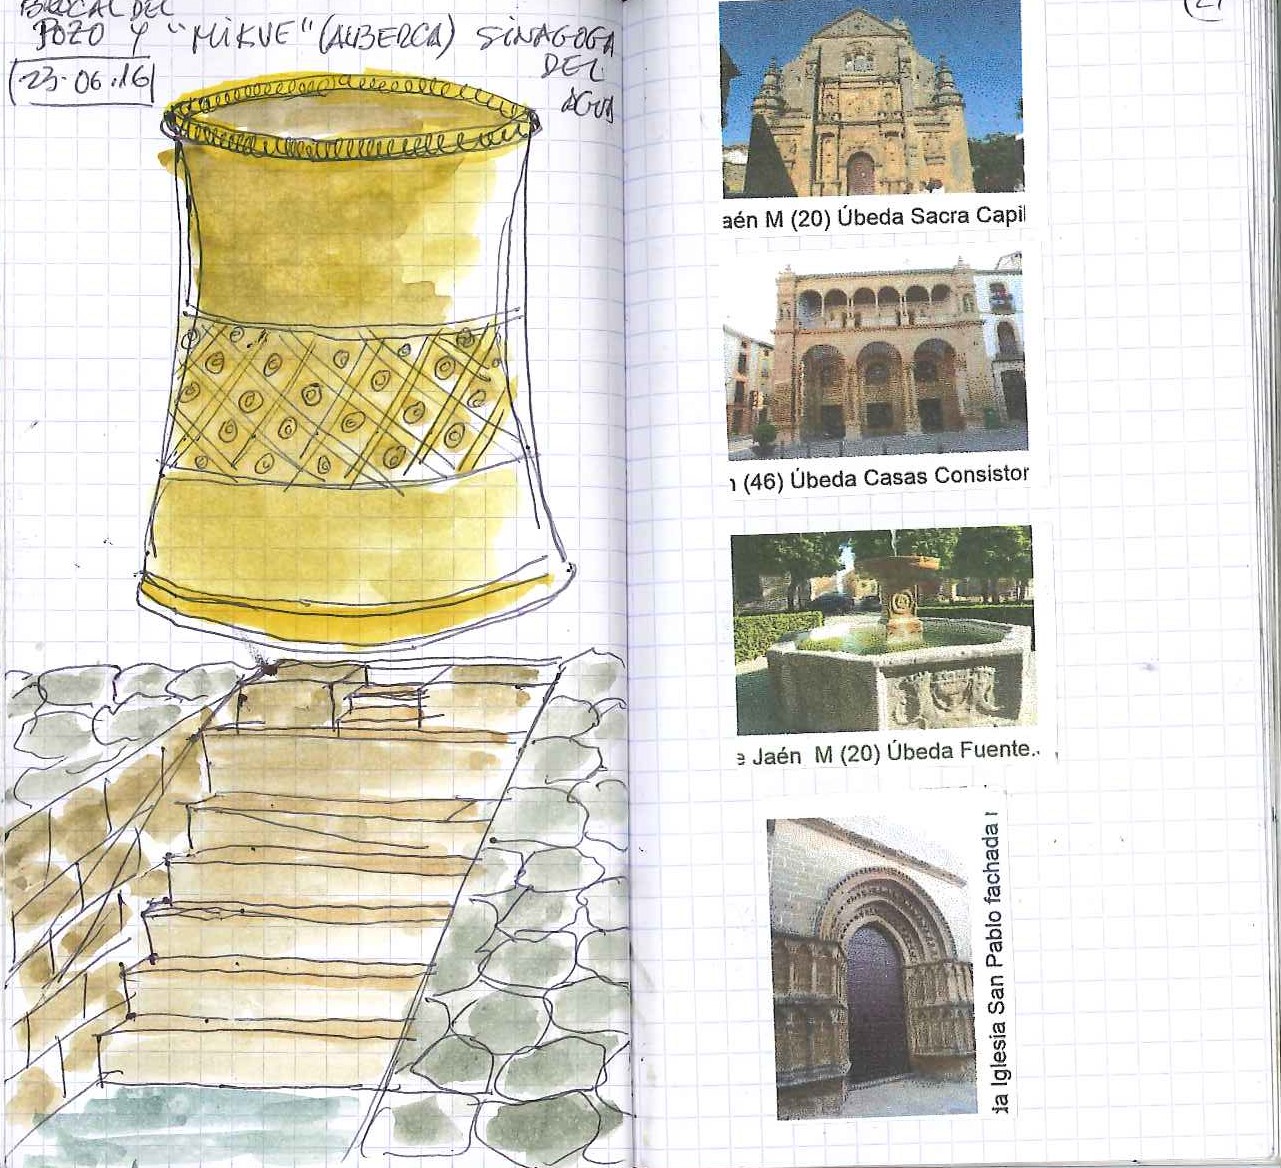 BROCAL DEL
POZO Y "MIKVE" (ALBERCA) SINAGOGA
DEL
AGUA
23·06·16
aén M (20) Úbeda Sacra Capil
(46) Úbeda Casas Consistor
e Jaén M (20) Úbeda Fuente..
da Iglesia San Pablo fachada